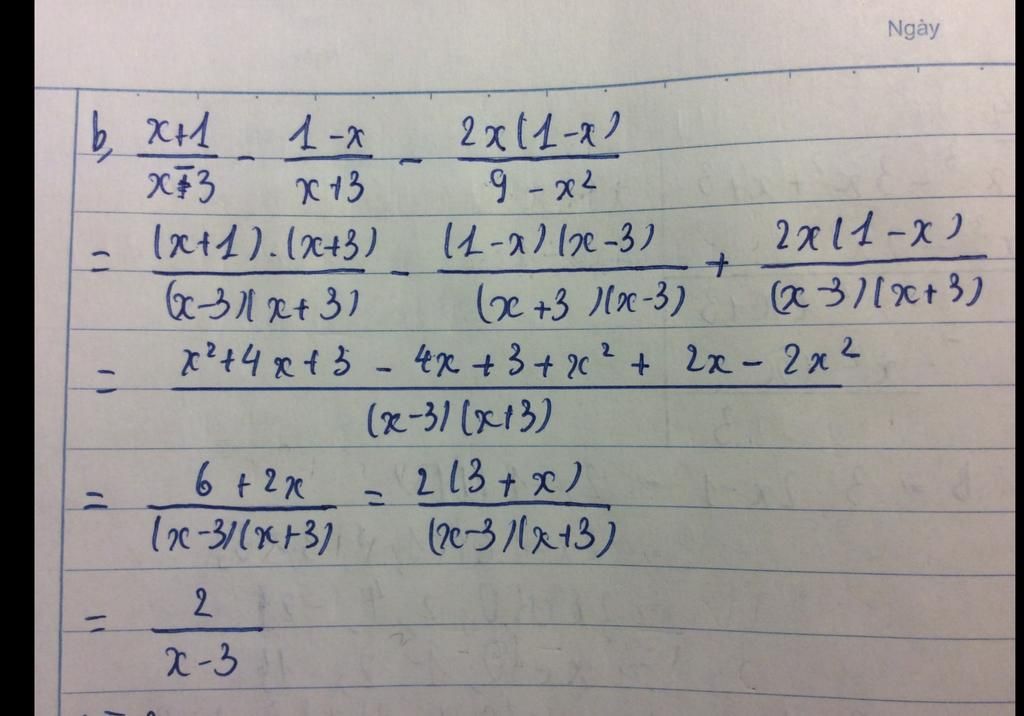 Ngày
b, \frac{x+1}{x-3} - \frac{1-x}{x+3} - \frac{2x(1-x)}{9-x²}
= \frac{(x+1).(x+3)}{(x-3)(x+3)} - \frac{(1-x)(x-3)}{(x+3)(x-3)} + \frac{2x(1-x)}{(x-3)(x+3)}
= \frac{x²+4x+3 - 4x+3+x² + 2x - 2x²}{(x-3)(x+3)}
= \frac{6+2x}{(x-3)(x+3)} = \frac{2(3+x)}{(x-3)(x+3)}
= \frac{2}{x-3}